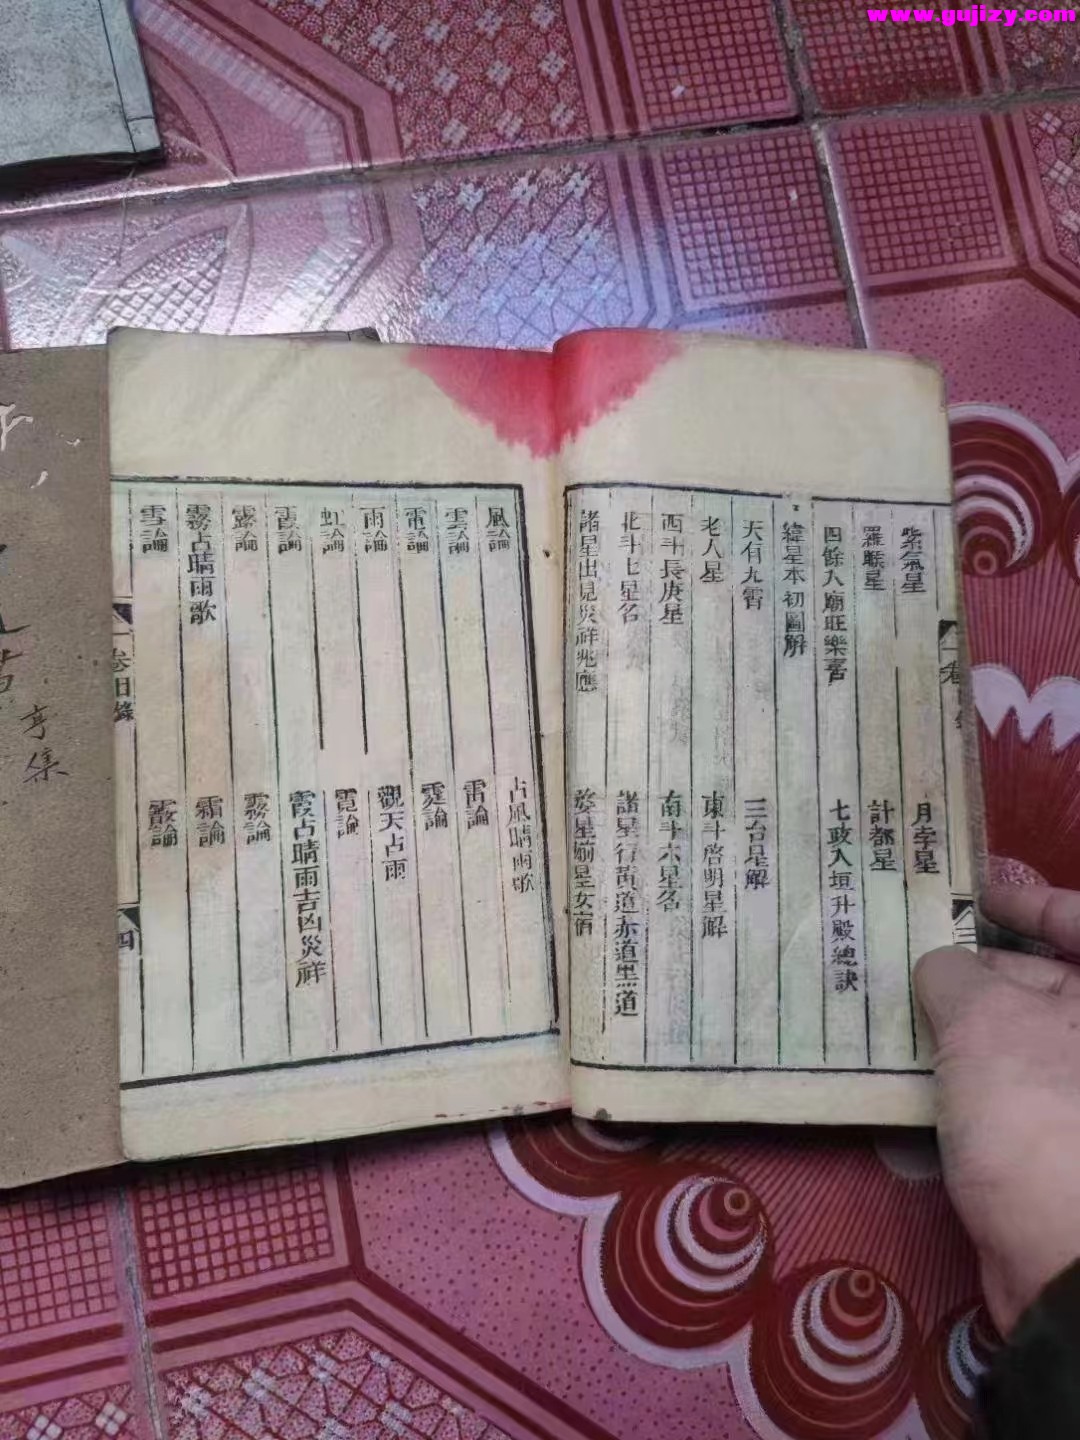 www.gujizy.com
紫氣星
月孛星
羅睺星
計都星
四餘入廟旺樂喜
七政入垣升殿總訣
緯星本初圖解
天有九霄
三台星解
老人星
東斗啓明星解
西斗長庚星
南斗六星名
北斗七星名
諸星行黃道赤道黑道
諸星出見災祥兆應
婺星婺星女宿
一卷
三
風論
占風晴雨歌
雲論
雷論
電論
霆論
雨論
觀天占雨
虹論
霓論
霞論
霞占晴雨吉凶災祥
露論
霧論
霧占晴雨歌
霜論
雪論
霰論
一卷目錄
四
亨集